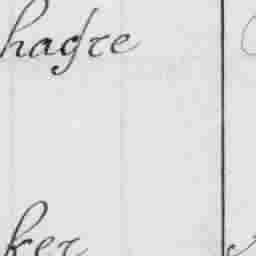 hagre
ker